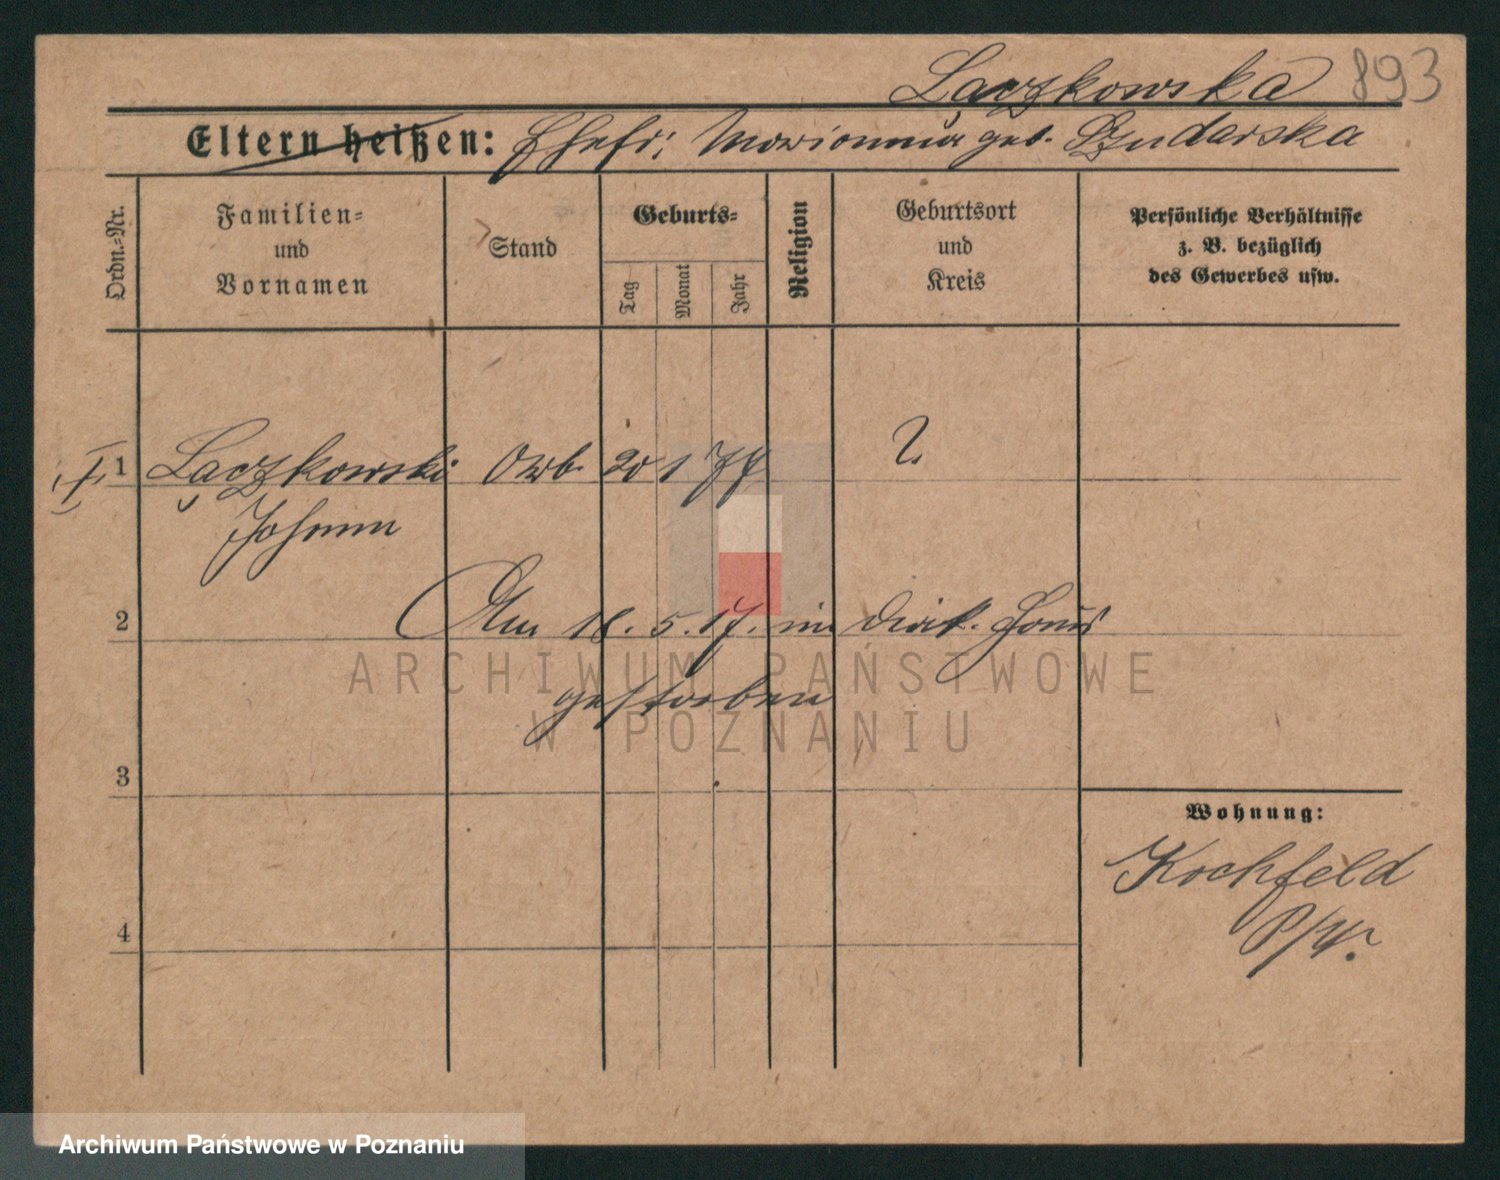 Laczkowska 893
Eltern heißen: Ehefr: Marianna geb. Szudarska
Ordn.-Nr.
Familien-
und
Vornamen
Stand
Geburts-
Tag
Monat
Jahr
Religion
Geburtsort
und
Kreis
Persönliche Verhältnisse
z. B. bezüglich
des Gewerbes usw.
I. 1 Łączkowski Arb. 20 1 77 ?
Johann
2 Am 18. 5. 17. im Diak. Haus
gestorben
3
4
Wohnung:
Kochfeld
P/W.
ARCHIWUM PAŃSTWOWE
W POZNANIU
Archiwum Państwowe w Poznaniu